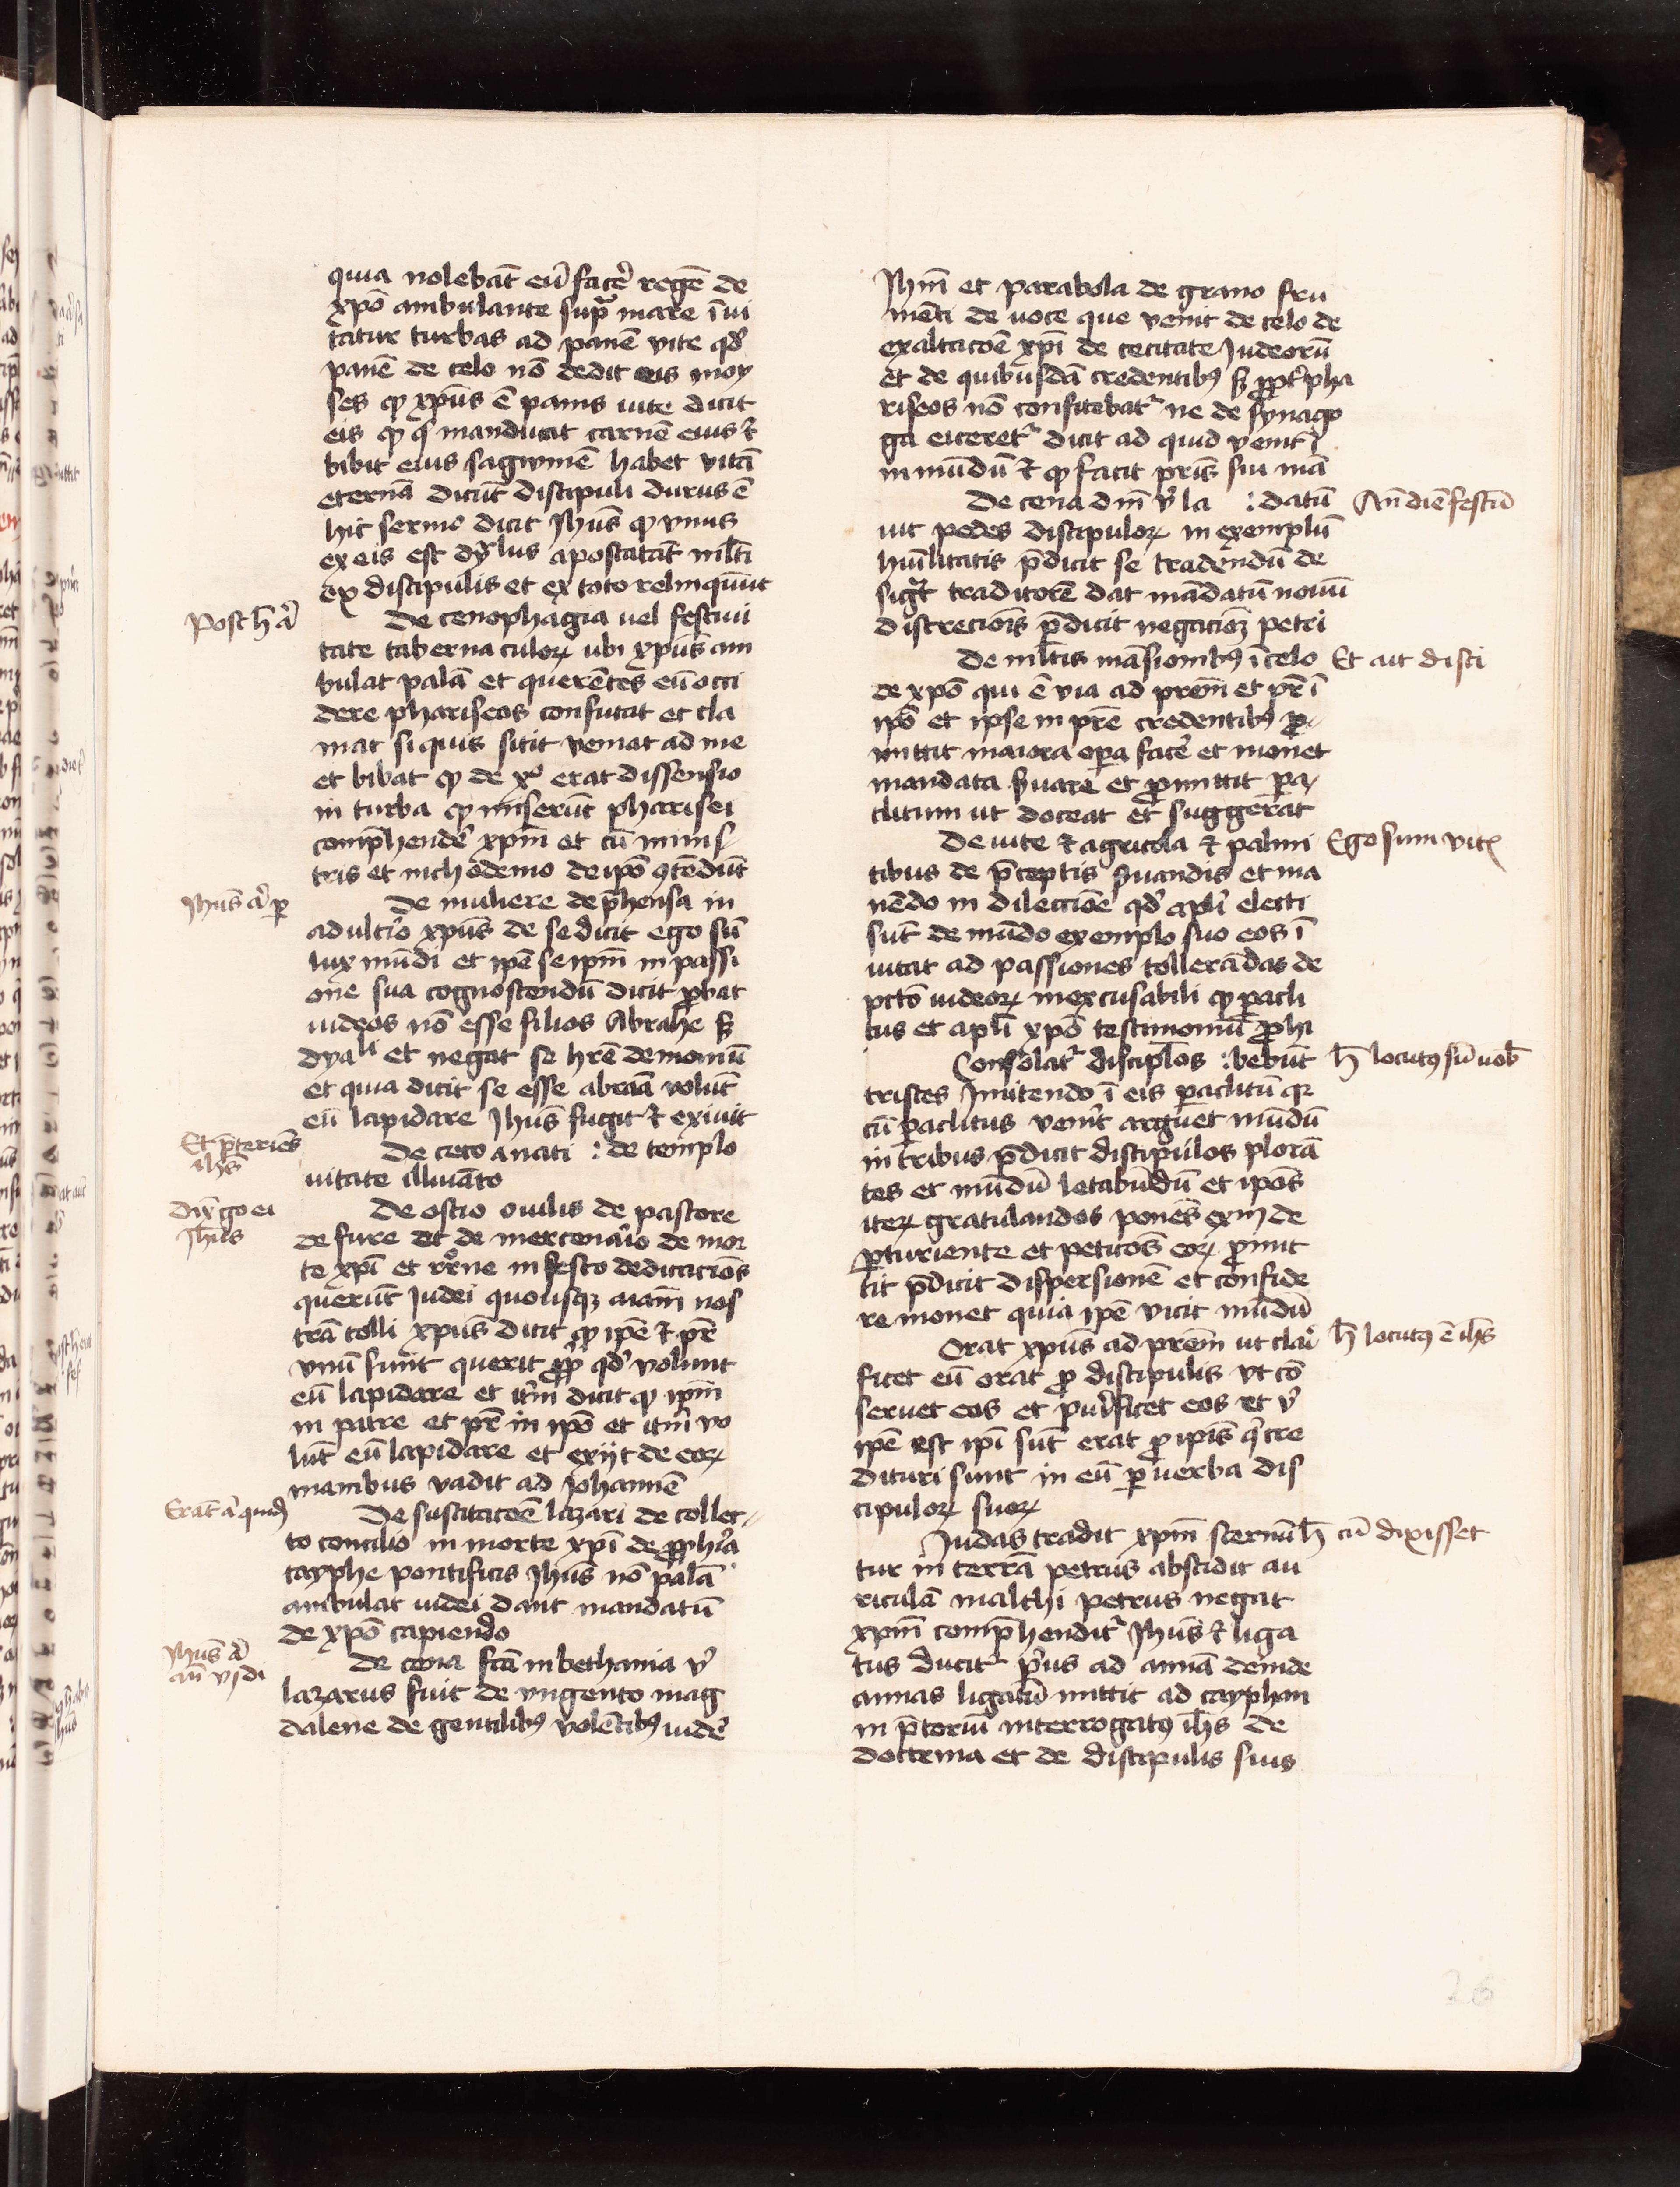 quia nolebāt eū facẽ regē de
xpō ambulante supra mare īui
tatur turbas ad panē vite qd'
panē de celo nō dedit eis moy
ses qꝫ xpūs ē panis uite dicit
eis qꝫ q̇ manducat carnē eius ⁊
bibit eius sagwinē habet vitā
eternā dicūt discipuli durus ē
hic sermo dicit Jhūs qꝫ vnus
ex eis est dy̾lus apostatāt ml̄ti
ex discipulis et ex toto relinquūt
Post h̄ a̾
De cenophagia uel festiui
tate taberna culoꝝ ubi xpūs am
bulat palā et querētes eū occi
dere phariseos confutat et cla
mat si quis sitit veniat ad me
et bibat qꝫ de xº erat dissensio
in turba qꝫ miserūt pharisei
comp̄hende̾ xpm̄ et cū minis
tris et nichodemo de ipō 9tēdūt
Jhūs a̾ ꝑ
De muliere dep̄hensa in
adulcīo xpūs de se dicit ego sū
lux mūdi et ipē se ipm̄ in passi
one sua cognoscendū dicit ꝓbat
iudeos nō esse filios Abrahe sꝫ
dyali et negat se hr̄e demoniū
et quia dicit se esse abraā volūt
eū lapidare Jhūs fugit ⁊ exiuit
Et p̄teriēs
ihs̄
De ceco a nati : de templo
uitate illuīato
Dix̄ go ei
Jhūs
De ostio ouilis de pastore
de fure et de mercenaīo de mor
te xpī et rr̊ne in festo dedicatiōs
querūt Judei quousqꝫ aīam̄ nos
trā tolli xpūs dicit qꝫ ipē ⁊ pr̄
vnū sunt querit ꝓp̄ qd' volunt
eū lapidare et itm̄ dicit qꝫ ipm̄
in patre et pr̄ in ipō et itm̄ vo
lūt eū lapidare et exijt de eoꝝ
manibus vadit ad Johannē
Erat̄ a̾ quid̄
De suscitacōe lazari de collec
to concilio in morte xpī de ꝓph̄ia
cayphe pontificis Jhūs nō palā
ambulat iudei dant mandatū
de xpō capiendo
Jhūs a̾
an̄ vj di
De cena fc̄a in bethania v̾
lazarus fuit de vngento mag
dalene de gentilibꝰ volētibꝰ uide̾
Jhm̄ et parabola de grano fru
mēti de uoce que venit de celo de
exaltacōe xpī de cecitate Judeorū
et de quibusdā credentibꝰ sꝫ ꝓpt̾ pha
riseos nō confitebat᷑ ne de synago
ga eiceret᷑ dicit ad quid venit ī
in mūdū ⁊ qꝫ facit pris̄ sui mā
De cena dm̄ v̾ la : datū
An̄ diē festū
uit pedes discipuloꝝ in exemplū
hūilitatis p̄dicit se tradendū de
sig̾t traditorē dat mādatū nouū
discrecīōis p̄dicit negaciōꝫ petri
De ml̄tis māsionibꝰ ī celo
Et ait disci
de xpō qui ē via ad prem̄ et pr̄ ī
ipō et ipse in pr̄e credentibꝰ ꝓ
mittit maiora opa face̾ et monet
mandata s̾uare et ꝓmittit pa
clitum ut doceat et suggerat
De uite ⁊ agricola ⁊ palmi
Ego sum vitꝭ
tibus de p̄ceptis s̾uandis et ma
nēdo in dilectiōe qd' apl̄i electi
sūt de mūdo exemplo suo eos ī
uitat ad passiones tollerādas de
pctō iudeoꝝ inexcusabili qꝫ pacli
tus et apl̄i xpō testimoniū ꝓhi
Consolat᷑ discipl̄os : bebūt
h̄ locutꝰ sū uob̄
tristes Jmitendo ī eis paclitū qꝛ
cū paclitus venīt arguet mūdū
in tribus p̄dicit discipulos plorā
tes et mūdū letabūdū et ipōs
iteꝝ gratulandos ponēs exm̄ de
ꝑturiente et peticōs eoꝝ ꝓmit
tit p̄dicit dispersionē et confide
re monet quia ipē vicit mūdū
Orat xpūs ad prem̄ ut clai
h̄ locutꝰ ē ihs̄
ficet eū orat ꝓ discipulis vt cō
seruet eos et pur̾ficet eos et v̾
ipē est ipī sūt erat ꝓ ipīs q̇ cre
dituri sunt in eū ꝑ verba dis
cipuloꝝ suoꝝ
Judas tradit xpm̄ sternūt᷑
h̄ cū dixisset
tur in terrā petrus abscidit au
riculā malchi petrus negat
xpm̄ comp̄hendit᷑ Jhūs ⁊ liga
tus ducit᷑ p̾us ad annā deinde
annas ligatū mittit ad cayphan
in p̄toriū interrogatꝰ ihs̄ de
doctrina et de discipulis suis
26